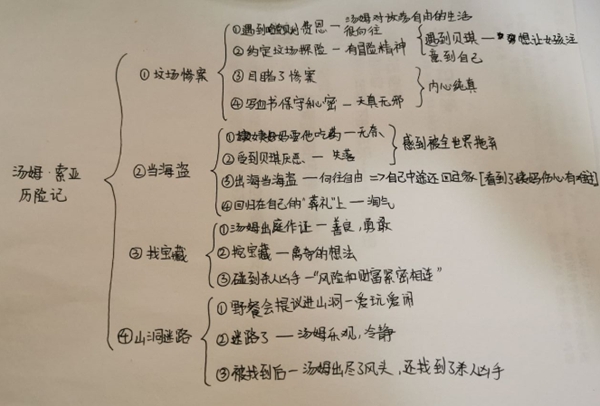 汤姆·索亚
历险记
① 坟场惨案
①遇到哈克贝利费恩 — 汤姆对放荡自由的生活
很向往
② 约定坟场探险 — 有冒险精神
遇到贝琪 — 想让女孩注
意到自己
③ 目睹了惨案
④ 写血书保守秘密 — 天真无邪
内心纯真
②当海盗
①姨妈要他吃药 — 无奈、
②受到贝琪厌恶、— 失落
感到被全世界抛弃
③出海当海盗 — 向往自由 => 自己中途还回过家[看到了姨妈伤心有难过]
④回归在自己的"葬礼"上 — 淘气
③ 找宝藏
①汤姆出庭作证 — 善良,勇敢
②挖宝藏 — 离奇的想法
③碰到杀人凶手 — "风险和财富紧密相连"
④山洞迷路
① 野餐会提议进山洞 — 爱玩爱闹
②迷路了 — 汤姆乐观,冷静
③ 被找到后 — 汤姆出尽了风头,还找到了杀人凶手